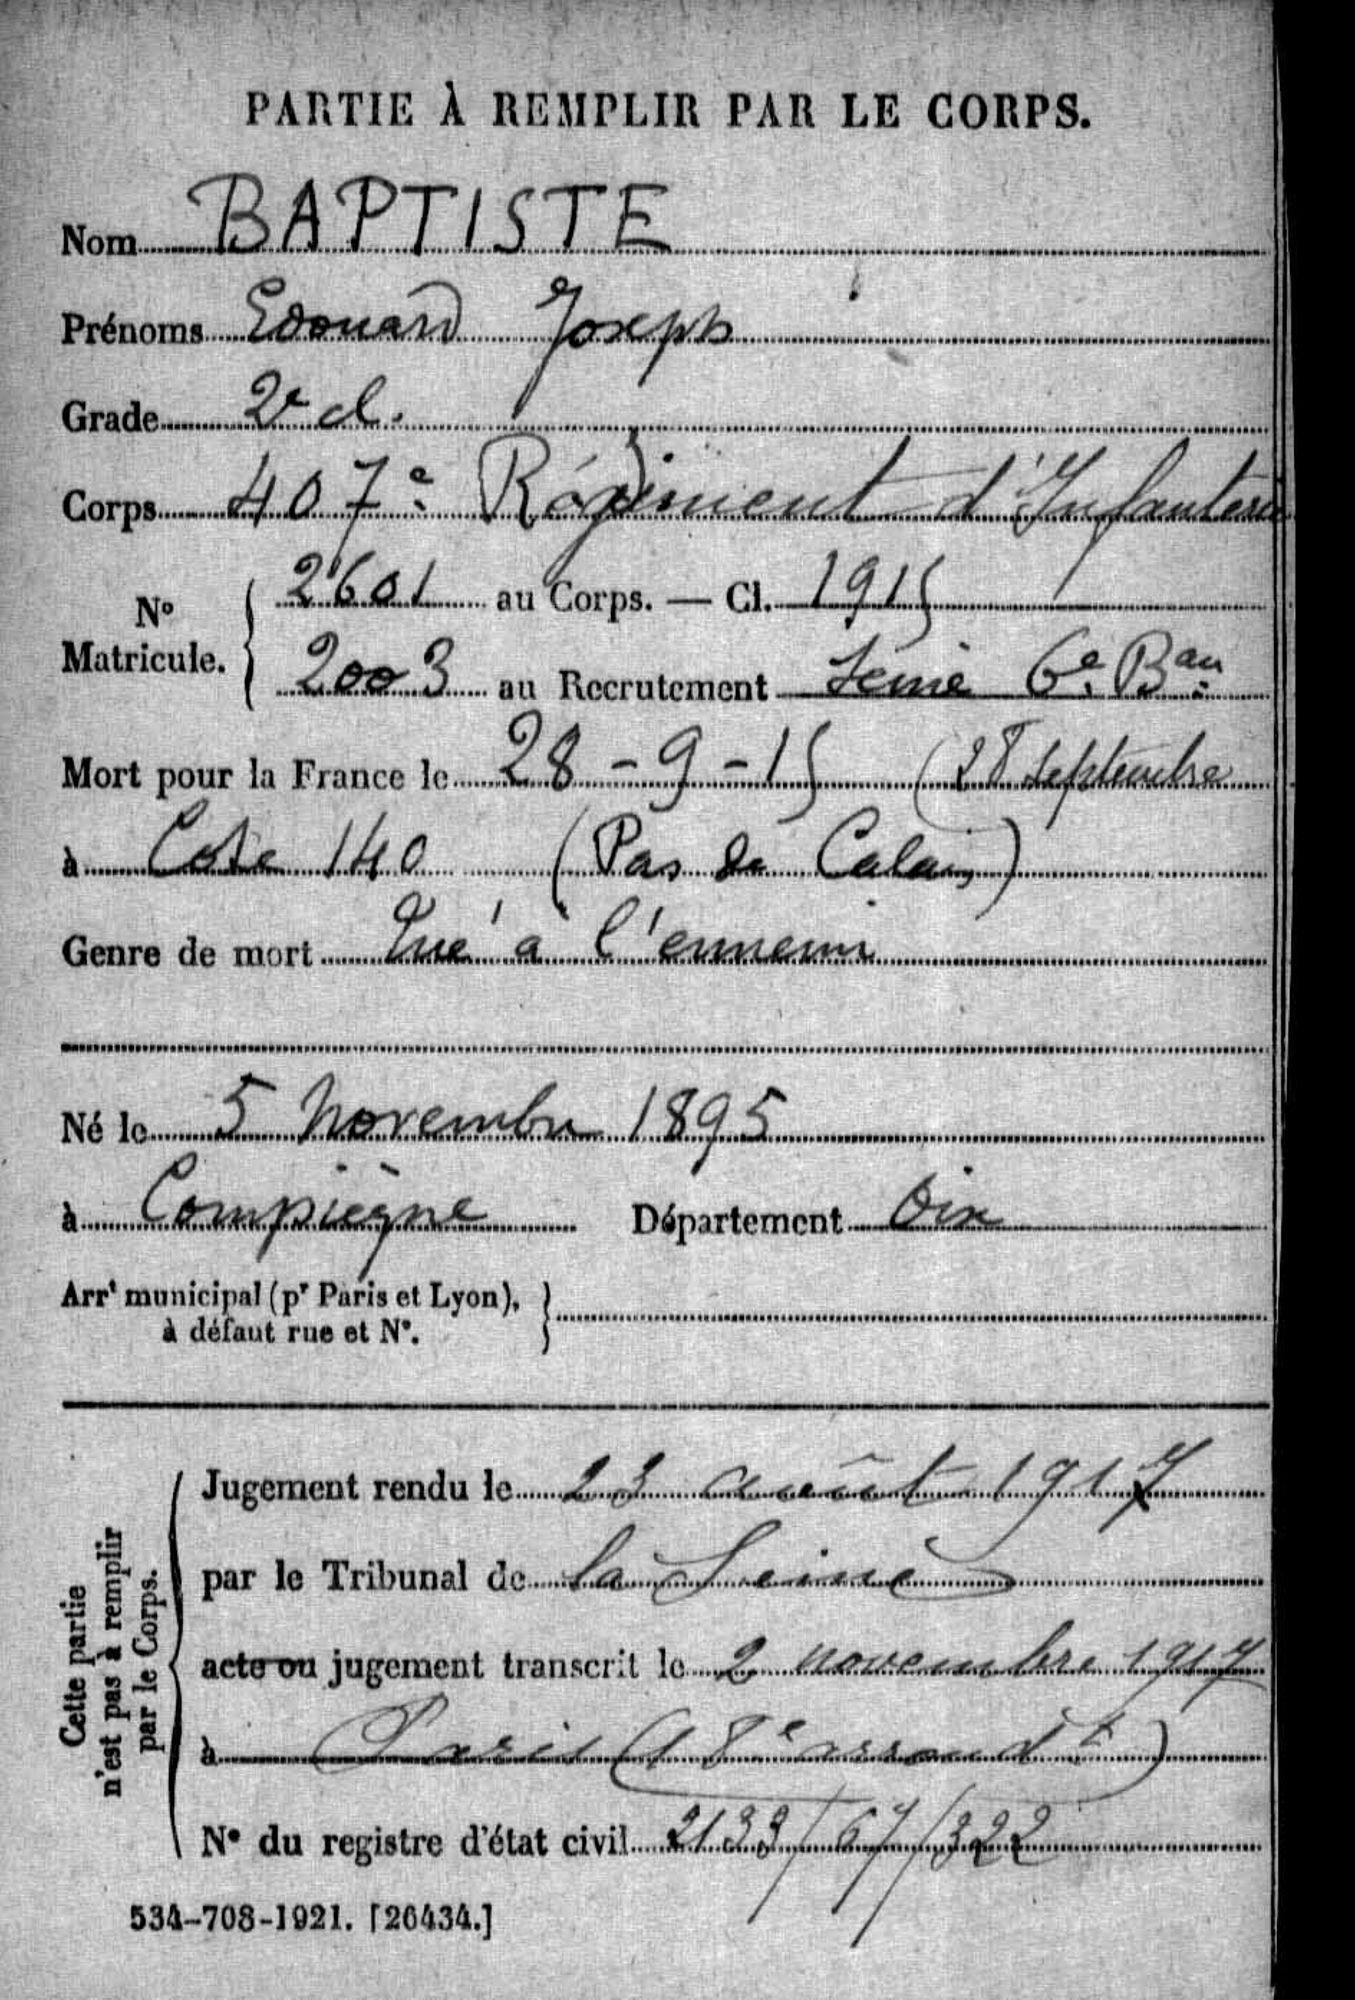 PARTIE À REMPLIR PAR LE CORPS.
Nom BAPTISTE
Prénoms Edouard Joseph
Grade 2e cl.
Corps 407e Régiment d'Infanterie
N° Matricule. { 2601 au Corps. — Cl. 1915
2003 au Recrutement Seine 6e Bau
Mort pour la France le 28-9-15 (28 septembre
à Cote 140 (Pas de Calais)
Genre de mort Tué à l'ennemi
Né le 5 Novembre 1895
à Compiègne Département Oise
Arrt municipal (pr Paris et Lyon), }
à défaut rue et N°.
Cette partie
n'est pas à remplir
par le Corps.
Jugement rendu le 23 août 1917
par le Tribunal de la Seine
acte ou jugement transcrit le 2 novembre 1917
à Paris (18e arrondt)
N° du registre d'état civil 2133/67/322
534-708-1921. [26434.]